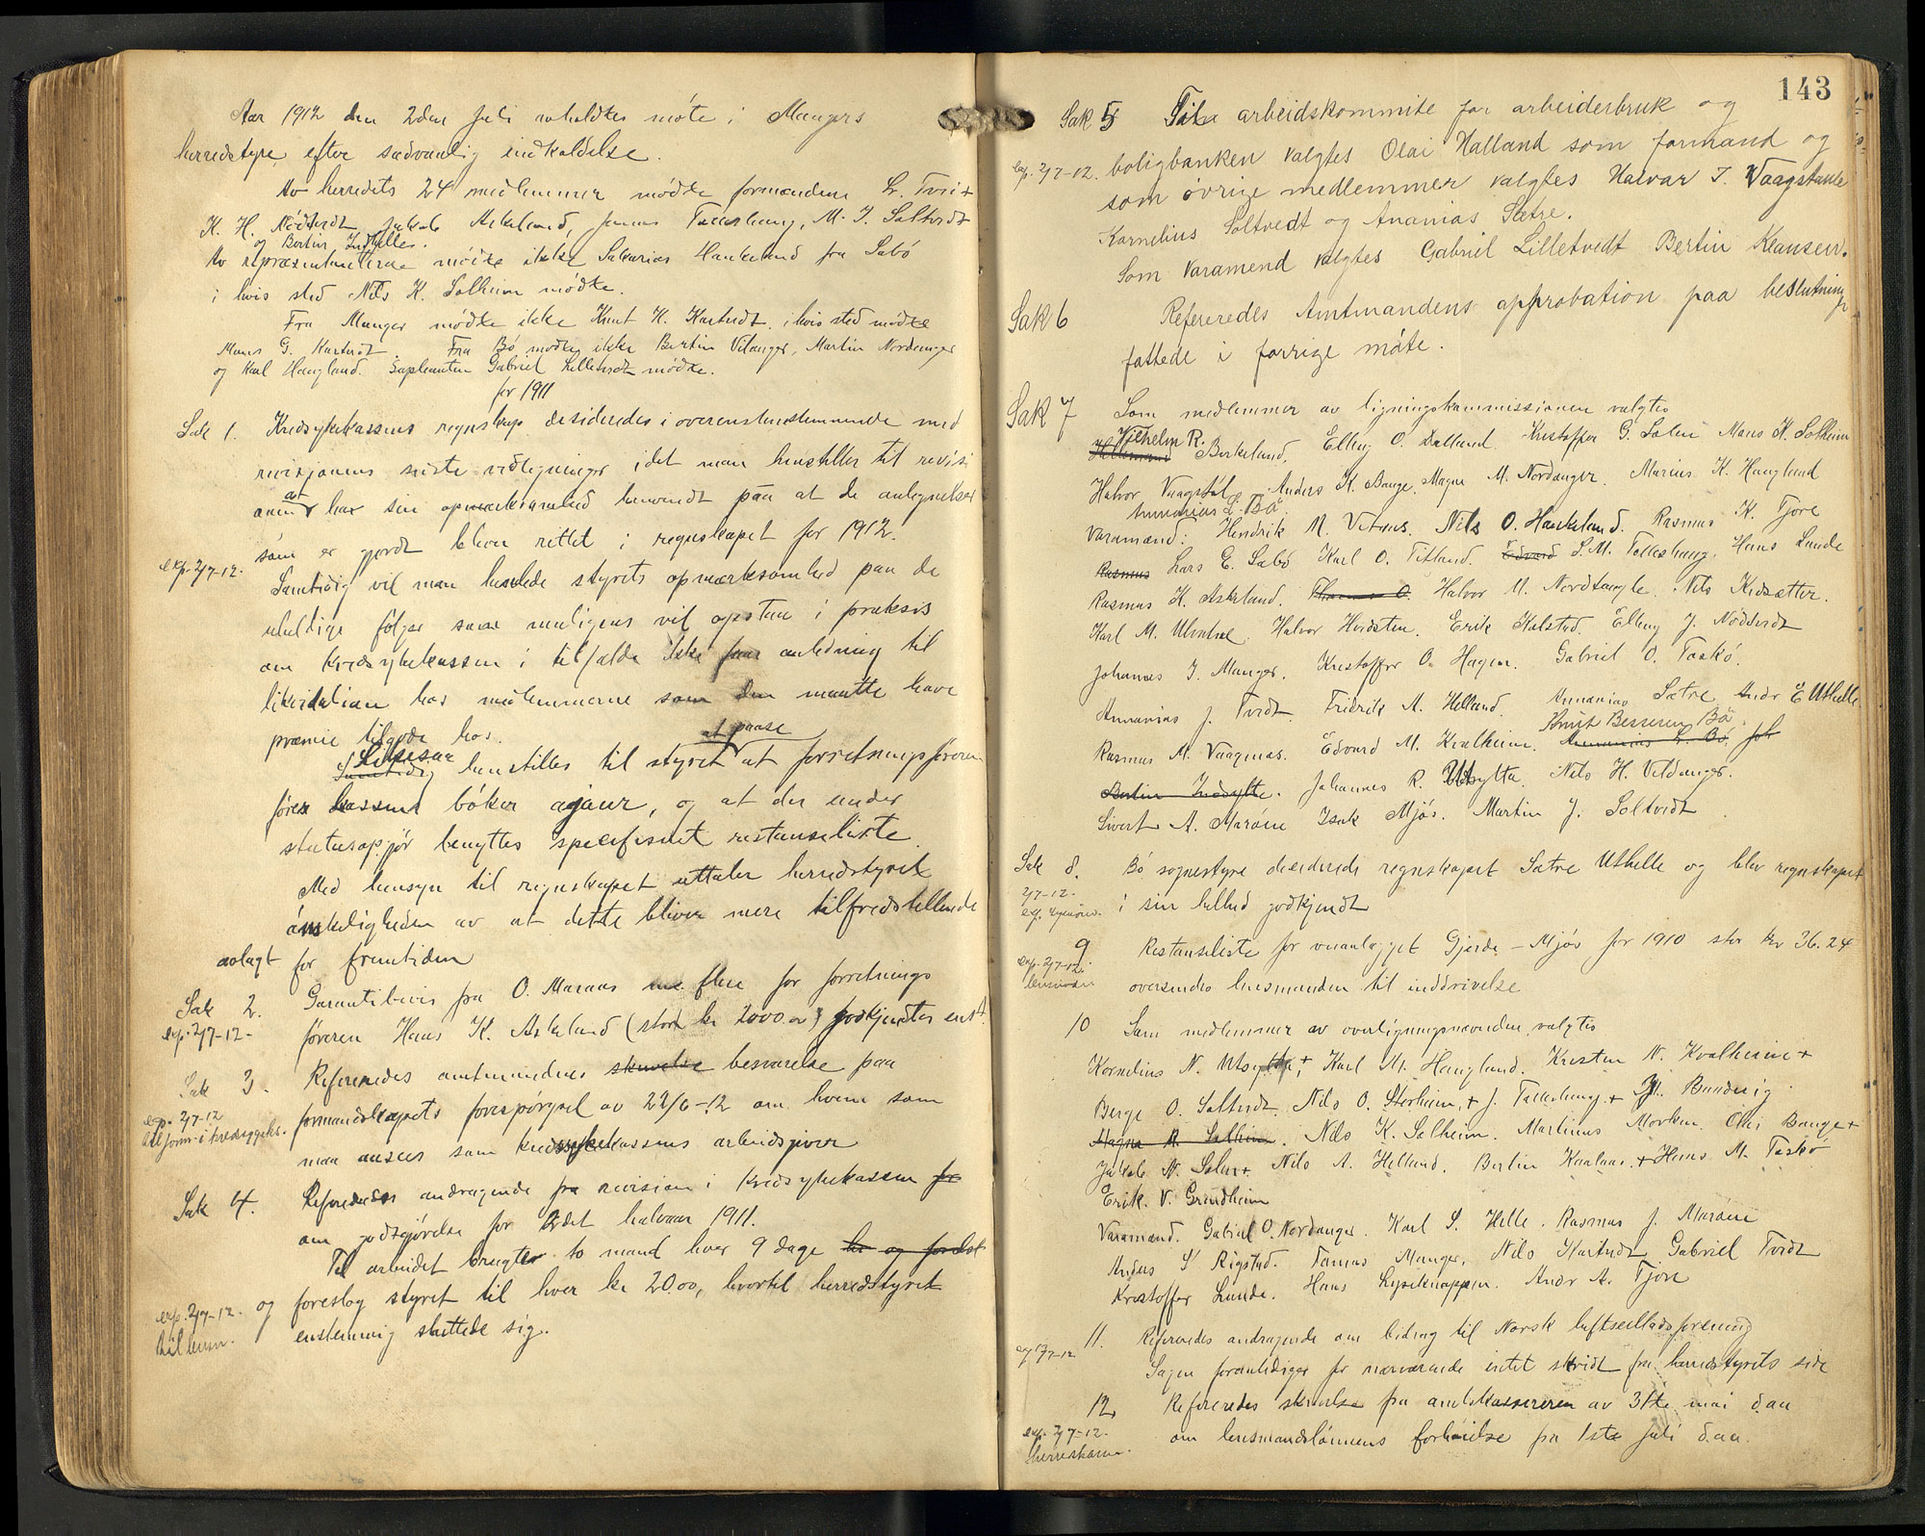 Aar 1912 den 2den juli avholdtes møte i Mangers
herredstyre efter sædvanlig indkaldelse.
Av herredets 24 medlemmer mødte formændene Hr. Tveit
K. H. Nødtvedt, Jakob Askeland, Jonas Toskehaug, M. J. Soltvedt
og Bertin Indhylles.
Av repræsentanterne mødte ikke Sakarias Haukeland fra Sæbø
i hvis sted Nils K. Solheim mødte.
Fra Manger mødte ikke Knut H. Kartvedt, i hvis sted mødte
Mons G. Kartvedt. Fra Bø mødte ikke Bertin Vetanger, Martin Nordanger
og Karl Haugland. Supleanten Gabriel Lilletvedt mødte.
for 1911
Sak 1. Kredsykekassens regnskap desideredes i overensstemmende med
revisjonens sidste vedtegninger idet man henstiller til revisi
onen at har sin opmerksamhed henvendt paa at de anlegnelser
som er gjordt bliver rettet i regnskapet for 1912.
exp. 2/7-12. Samtidig vil man henlede styrets opmærksomhed paa de
uheldige følger som muligens vil opstaa i praksis
om kredsykekassen i tilfælde ikke faar anledning til
likvidation hos medlemmerne som den maatte have
præmie tilgode hos.
Likesaa at paase
Samtidig henstilles til styret at forretningsføreren
fører kassens bøker ajour, og at der under
statusopgjør benyttes specifisert restanseliste.
Med hensyn til regnskapet uttaler herredstyret
ønskeligheden av at dette bliver mere tilfredstillende
avlagt for fremtiden
Sak 2. Garantibevis fra O. Maraas me flere for forretnings
exp. 2/7-12- føreren Hans K. Askeland (stort kr 2000.00) godkjendtes enst.
Sak 3. Refereredes amtmandens skrivelse besvarelse paa
exp. 2/7-12 formandskapets forespørgsel av 22/6-12 om hvem som
til form. i kredsygeks. maa ansees som kredssykekassens arbeidsgiver
Sak 4. Refereredes andragende fra revision i kredsykekassen for
om godtgjørelse for 2det halvaar 1911.
Til arbeidet brugtes to mand hver 9 dage har og foreslot
exp. 2/7-12. og foreslog styret til hver kr 20.00, hvortil herredstyret
til lensm. enstemmig sluttede sig.
143
Sak 5 Til arbeidskommite for arbeiderbruk og
exp. 2/7-12. boligbanken valgtes Olai Halland som formand og
som øvrige medlemmer valgtes Halvar J. Vaagstaule
Kornelius Soltvedt og Ananias Sætre.
Som varamend valgtes Gabriel Lilletvedt Bertin Klausen.
Sak 6 Refereredes Amtmandens approbation paa beslutninger
fattede i forrige møte.
Sak 7 Som medlemmer av ligningskommissionen valgtes
Vilhelm R. Birkeland, Elling O. Dalland Kristoffer G. Solem Mons K. Solheim
Halvor Vaagstøl, Anders K. Bauge, Magne M. Nordanger, Marius K. Haugland
Annanias L. Bø.
Varamænd: Hendrik M. Vetaas, Nils O. Haukeland. Rasmus K. Fjore
Rasmus Lars E. Sæbø Karl O. Titland. Edvard S.M. Toskehaug. Hans Lunde
Rasmus K. Askeland. Thomas O. Halvor M. Nordtangle. Nils Kidsætter.
Karl M. Halvor Hordsten. Erik Halstad. Elling J. Nødtvedt
Johannes J. Manger. Kristoffer O. Hagen. Gabriel O. Toskø.
Annanias J. Tvedt. Fridrik A. Helland. Annanias Sætre Andr E Uthelle
Knut Bessesen Bø.
Rasmus M. Vaagenes. Edvard M. Kvalheim. Annanias L. Bø Joh
Bertin Indsylte. Johannes R. Utsylta. Nils H. Vetanger.
Sivert A. Marøen Isak Mjøs. Martin J. Soltvedt
Sak 8. Bø sognestyre desiderede regnskapet Sætre Uthelle og blev regnskapet
2/7-12.
i sin helhed godkjendt
9 Restanseliste for veianlægget Gjerde - Mjøs for 1910 stor kr 36.24
exp. 2/7-12. oversendes lensmanden til inddrivelse
lensmann
10 Som medlemmer av overligningsnævnden valgtes
Kornelius N. Utsylta+, Karl M. Haugland. Kristen N. Kvalheim+
Berge O. Soltvedt. Nils O. Storheim,+ J. Toskehaug,+ M. Bunderig
Magne R. Solheim. Nils K. Solheim. Martinus Morken. Olai Bauge+
Jakob N. Solem+ Nils A. Helland. Bertin Kaalaas.+ Hans M. Toskø
Erik. V. Grindheim
Varamænd. Gabriel O. Nordanger. Karl S. Helle. Rasmus J. Marøen
Anders S Rigstad. Tomas Manger, Nils Kartvedt, Gabriel Tvedt
Kristoffer Lunde. Hans Lyseknappen. Andr A. Fjore
11. Refereredes andragende om bidrag til Norsk luftseiladsforening
exp 2/7-12 Sagen foranlediger for nærværende intet skridt fra herredstyrets side
12. Refereredes skrivelse fra amtskassereren av 31te mai d.aa
exp. 2/7-12. om lensmandslønnens forhøielse fra 1ste juli d.aa.
herreskasse.